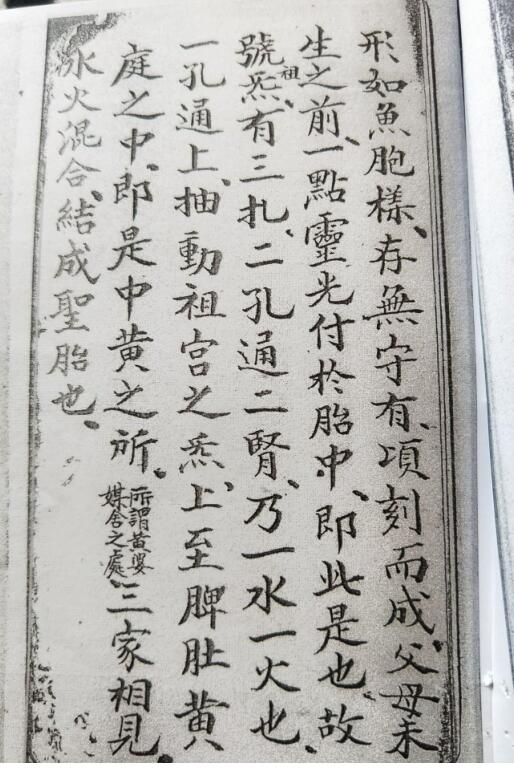 形如魚胞樣、存無守有、項刻而成、父母未
生之前、一點靈光付於胎中、即此是也、故
號祖炁、有三孔、二孔通二腎、乃一水一火也、
一孔通上、抽動祖宮之炁、上至脾肚黃
庭之中、即是中黃之所。所謂黃婆媒舍之處、三家相見、
水火混合、結成聖胎也、